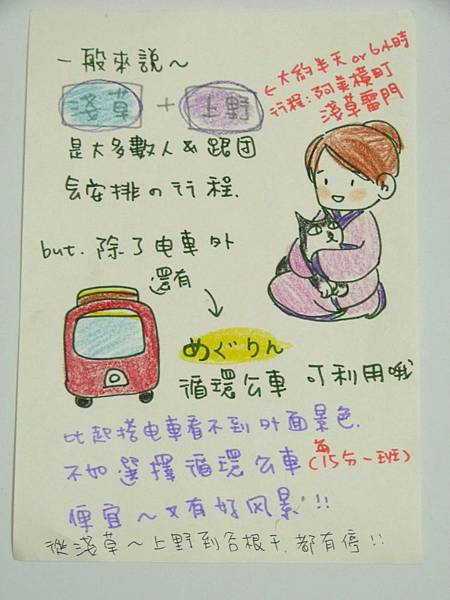 一般來說～
淺草 + 上野
←大約半天or6小時
行程:阿美橫町
淺草雷門
是大多數人&跟團
會安排の行程.
but.除了电車外
還有
めぐりん
循環公車 可利用哦
比起搭电車看不到外面景色.
不如選擇循環公車(每15分一班)
便宜～又有好风景!!
從淺草～上野到谷根千.都有停!!